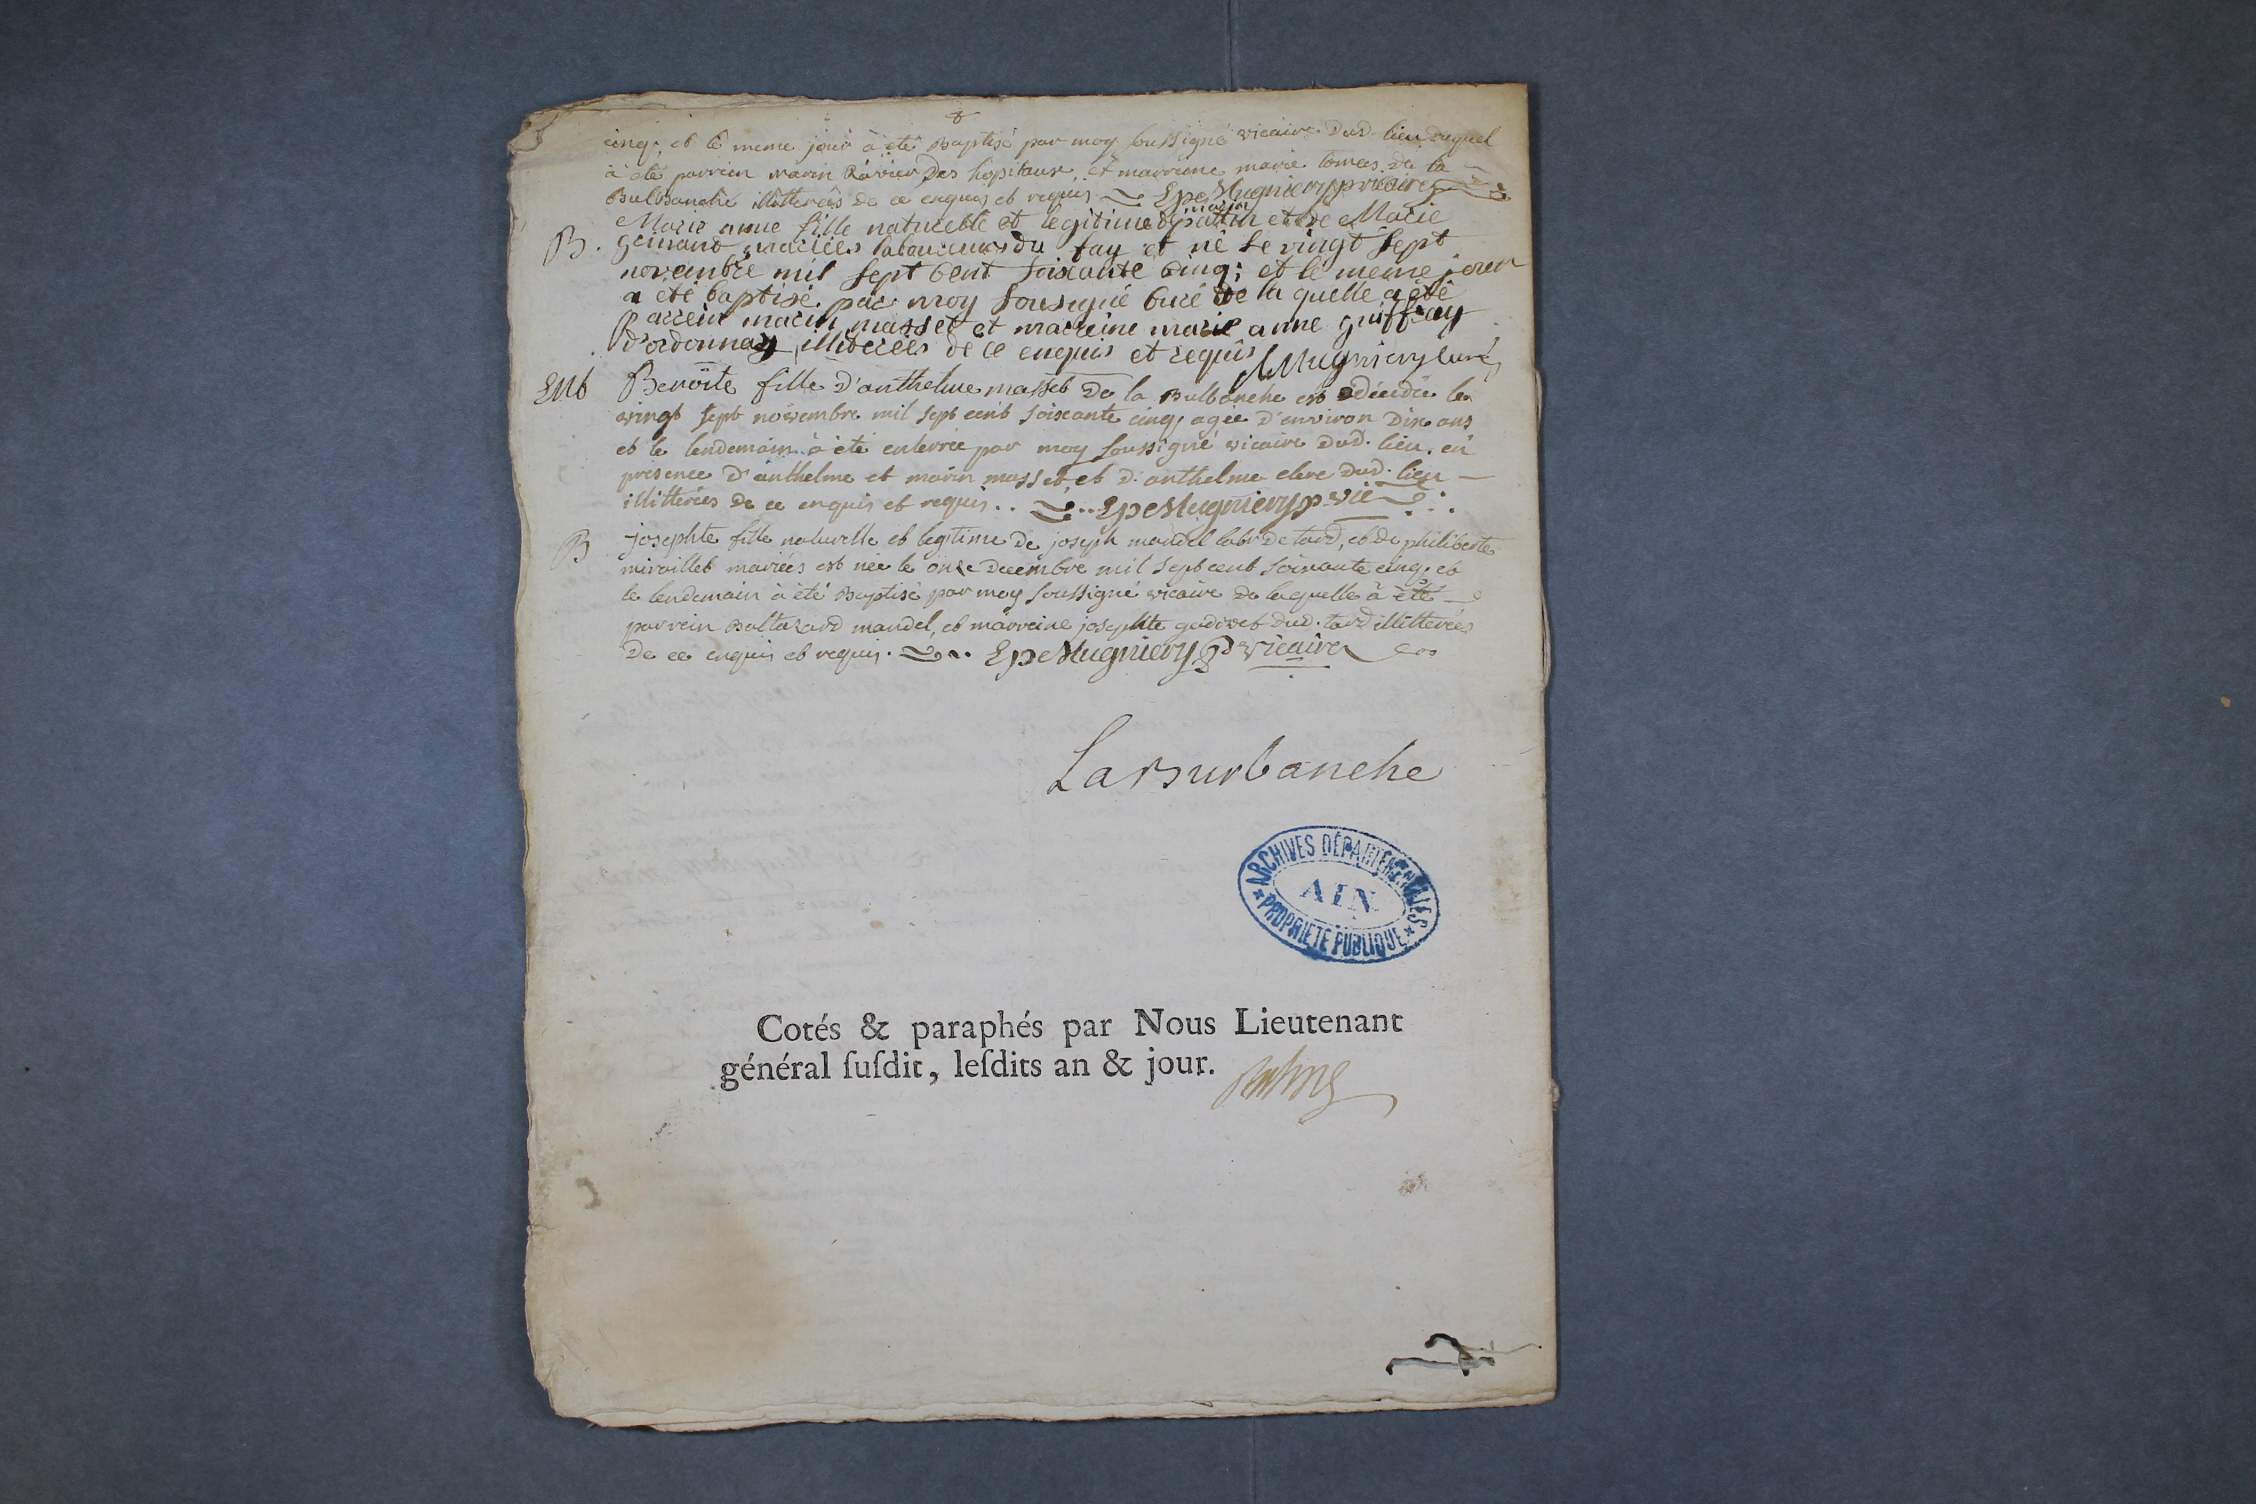 cinq; et le meme jour à été Baptisé par moy soussigné vicaire dud. lieu duquel
à été parrein marin Ravier des hopitaux, et marreine marie tomas de la
Bulbanche illitterés de ce enquis et requis EpeMugniery p vicaire
marin
Marie anne fille naturelle et legitime de pattin et de Marie
B. geinand mariées laboureurs du fay et né le vingt sept
novembre mil sept cent soixante cinq; et le meme jour
a été baptisé par moy sousigné curé de la quelle a été
Parrein marin masset et marreine marie anne guiffray
d'ordonnaz illiterées de ce enquis et requis Mugniery curé
Ent Benoite fille d'anthelme masset de la Bulbanche est décédée le
vingt sept novembre mil sept cent soixante cinq, agée d'environ dix ans
et le lendemain à été enterrée par moy soussigné vicaire dud. lieu. en
presence d'anthelme et marin masset, et d'anthelme clerc dud. lieu
illitterées de ce enquis et requis.. EpeMugniery p vic
B josephte fille naturelle et legitime de joseph mandel labr de tard, et de philiberte
miraillet mariées est née le onze decembre mil sept cent soixante cinq. et
le lendemain à été Baptisé par moy soussigné vicaire de laquelle à été
parrein Baltazard mandel, et marreine josephte dud. tard illitterées
de ce enquis et requis. EpeMugniery P vicaire
La Burbanche
ARCHIVES DÉPARTEMENTALES
AIN
PROPRIÉTÉ PUBLIQUE
Cotés & paraphés par Nous Lieutenant
général ſuſdit, leſdits an & jour.